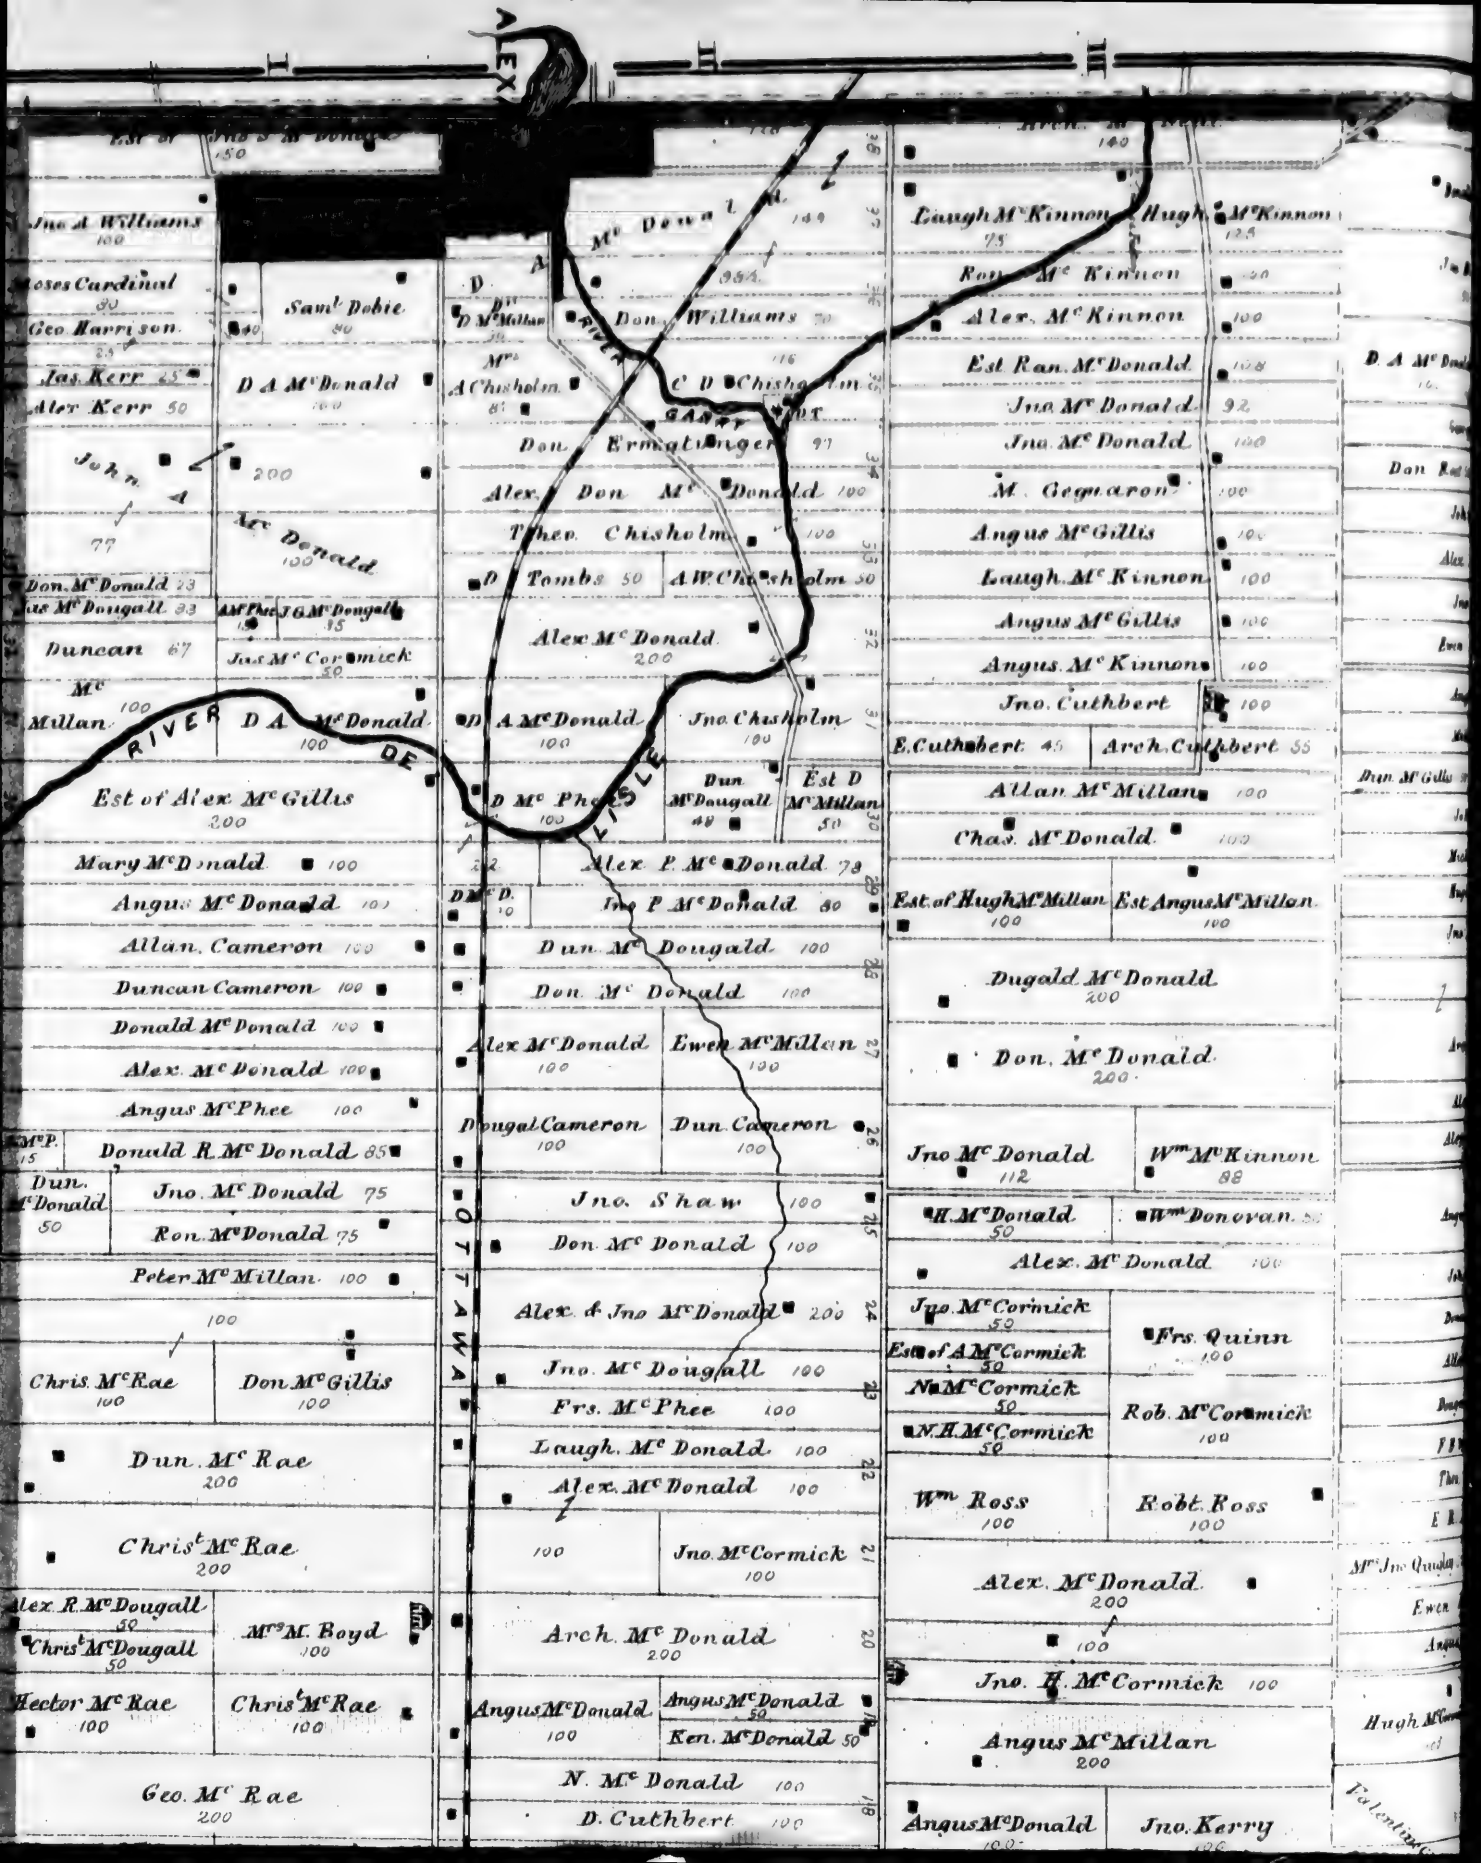 I
II
III
ALEX
Est of Jno S McDonald
150
Jno A Williams
100
Moses Cardinal
80
Geo Harrison
25
Jas. Kerr 25
Alex Kerr 50
John A McDonald
77
200
100
Don. McDonald 23
Jas McDougall 33
Duncan 67
Mc
Millan 100
Saml Dobie
80
D A McDonald
100
A McPhee
15
J.G. McDougall
85
Jas McCormick
50
RIVER DE LISLE
D A McDonald
100
Est of Alex McGillis
200
Mary McDonald 100
Angus McDonald 100
Allan. Cameron 100
Duncan Cameron 100
Donald McDonald 100
Alex. McDonald 100
Angus McPhee 100
McP.
15
Donald R McDonald 85
Dun.
McDonald
50
Jno. McDonald 75
Ron. McDonald 75
Peter McMillan 100
100
Chris. McRae
100
Don McGillis
100
Dun. McRae
200
Christ McRae
200
Alex R McDougall
50
Christ McDougall
50
Mrs M. Boyd
100
Hector McRae
100
Christ McRae
100
Geo. McRae
200
D A McDonald
149
98½
D McMillan
Don Williams 70
RIVER
GARRY
Mrs
A Chisholm
C D Chisholm
116
Don Ermatinger 97
Alex Don McDonald 100
Theo. Chisholm 100
D Tombs 50
A.W. Chisholm 50
Alex McDonald
200
D A McDonald
100
Jno. Chisholm
100
D McPhee
100
Dun
McDougall
48
Est D
McMillan
50
22
Alex P. McDonald 78
D McD.
10
Jno P McDonald 80
Dun. McDougald 100
Don McDonald 100
Alex McDonald
100
Ewen McMillan
100
Dougal Cameron
100
Dun Cameron
100
Jno. Shaw 100
Don McDonald 100
Alex & Jno McDonald 200
Jno. McDougall 100
Frs. McPhee 100
Laugh. McDonald 100
Alex. McDonald 100
100
Jno. McCormick
100
Arch. McDonald
200
Angus McDonald
100
Angus McDonald
50
Ken. McDonald 50
N. McDonald 100
D. Cuthbert 100
OTTAWA
38
37
36
35
34
33
32
31
30
29
28
27
26
25
24
23
22
21
20
19
18
140
Laugh McKinnon
75
Hugh McKinnon
125
Ron McKinnon 100
Alex. McKinnon 100
Est Ran. McDonald 108
Jno. McDonald 92
Jno. McDonald 100
M. Gequaron 100
Angus McGillis 100
Laugh. McKinnon 100
Angus McGillis 100
Angus. McKinnon 100
Jno. Cuthbert 100
E. Cuthbert 45
Arch. Cuthbert 55
Allan McMillan 100
Chas. McDonald 100
Est. of Hugh McMillan
100
Est Angus McMillan
100
Dugald McDonald
200
Don. McDonald
200
Jno McDonald
112
Wm McKinnon
88
H. McDonald
50
Wm Donovan 50
Alex. McDonald 100
Jno. McCormick
50
Est of A McCormick
50
Frs. Quinn
100
N McCormick
50
N.H. McCormick
50
Rob. McCormick
100
Wm Ross
100
Robt. Ross
100
Alex. McDonald
200
100
Jno. H. McCormick 100
Angus McMillan
200
Angus McDonald
100
Jno. Kerry
100
D. A McDonald
Don
Dun. McGillis
Mrs Jno Quigley
Ewen
Angus
Hugh
Valentine